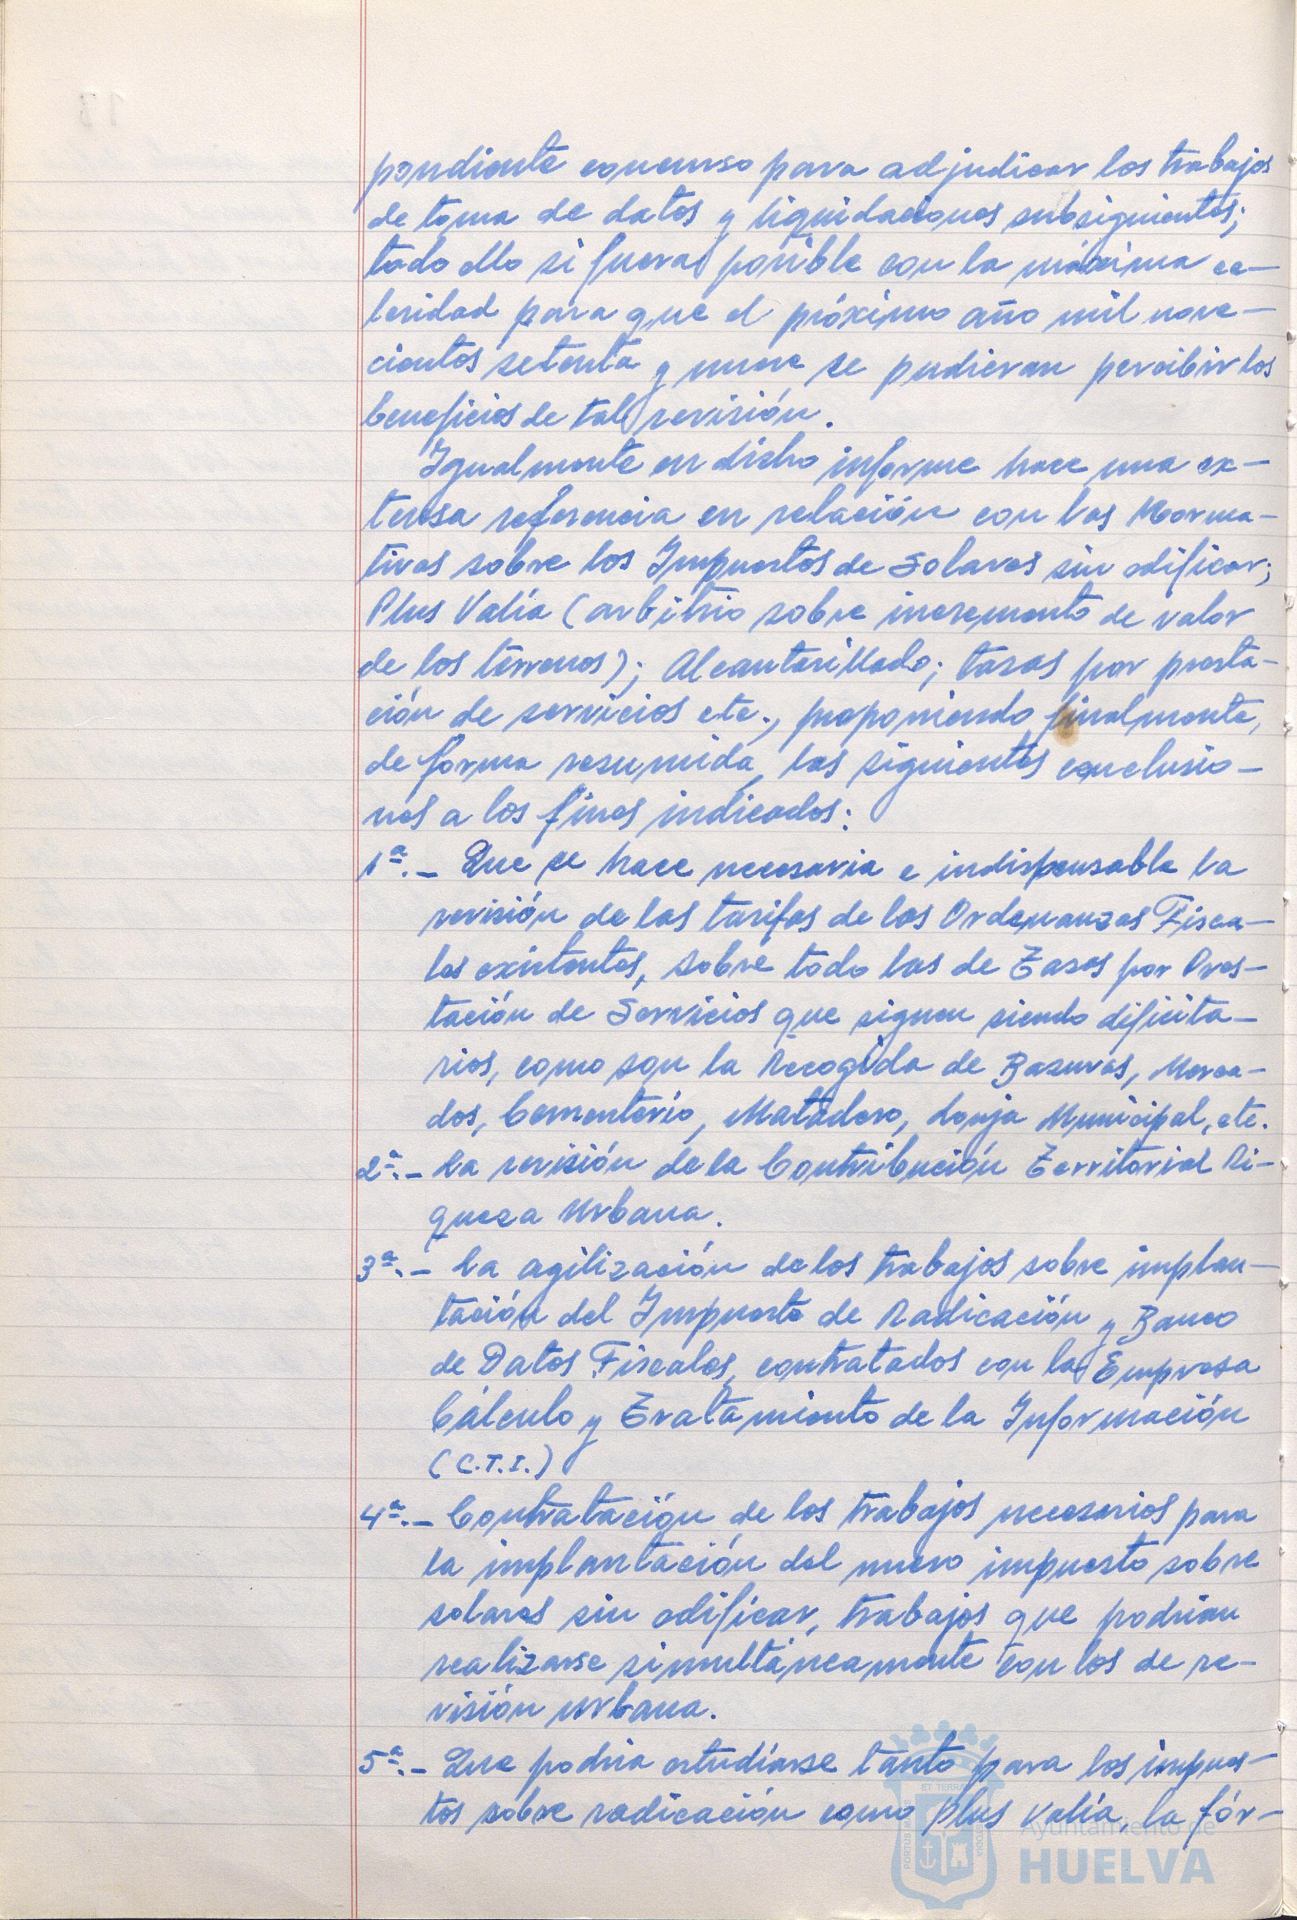 pondiente concurso para adjudicar los trabajos
de toma de datos y liquidaciones subsiguientes;
todo ello si fuera posible con la máxima ce-
leridad para que el próximo año mil nove-
cientos setenta y nueve se pudieran percibir los
beneficios de tal revisión.
Igualmente en dicho informe hace una ex-
tensa referencia en relación con las Norma-
tivas sobre los Impuestos de Solares sin edificar;
Plus Valía (arbitrio sobre incremento de valor
de los terrenos); Alcantarillado; tasas por presta-
ción de servicios etc., proponiendo finalmente,
de forma resumida, las siguientes conclusio-
nes a los fines indicados:
1ª.- Que se hace necesaria e indispensable la
revisión de las tarifas de las Ordenanzas Fisca-
les existentes, sobre todo las de Tasas por Pres-
tación de Servicios que siguen siendo difícita-
rios, como son la Recogida de Basuras, Merca-
dos, Cementerio, Matadero, Lonja Municipal, etc.
2ª.- La revisión de la Contribución Territorial Ri-
queza Urbana.
3ª.- La agilización de los trabajos sobre implan-
tación del Impuesto de Radicación y Banco
de Datos Fiscales, contratados con la Empresa
Cálculo y Tratamiento de la Información
(C.T.I.)
4ª.- Contratación de los trabajos necesarios para
la implantación del nuevo impuesto sobre
solares sin edificar, trabajos que podrían
realizarse simultáneamente con los de re-
visión urbana.
5ª.- Que podría estudiarse tanto para los impues-
tos sobre radicación como Plus Valía, la fór-
Ayuntamiento de
HUELVA